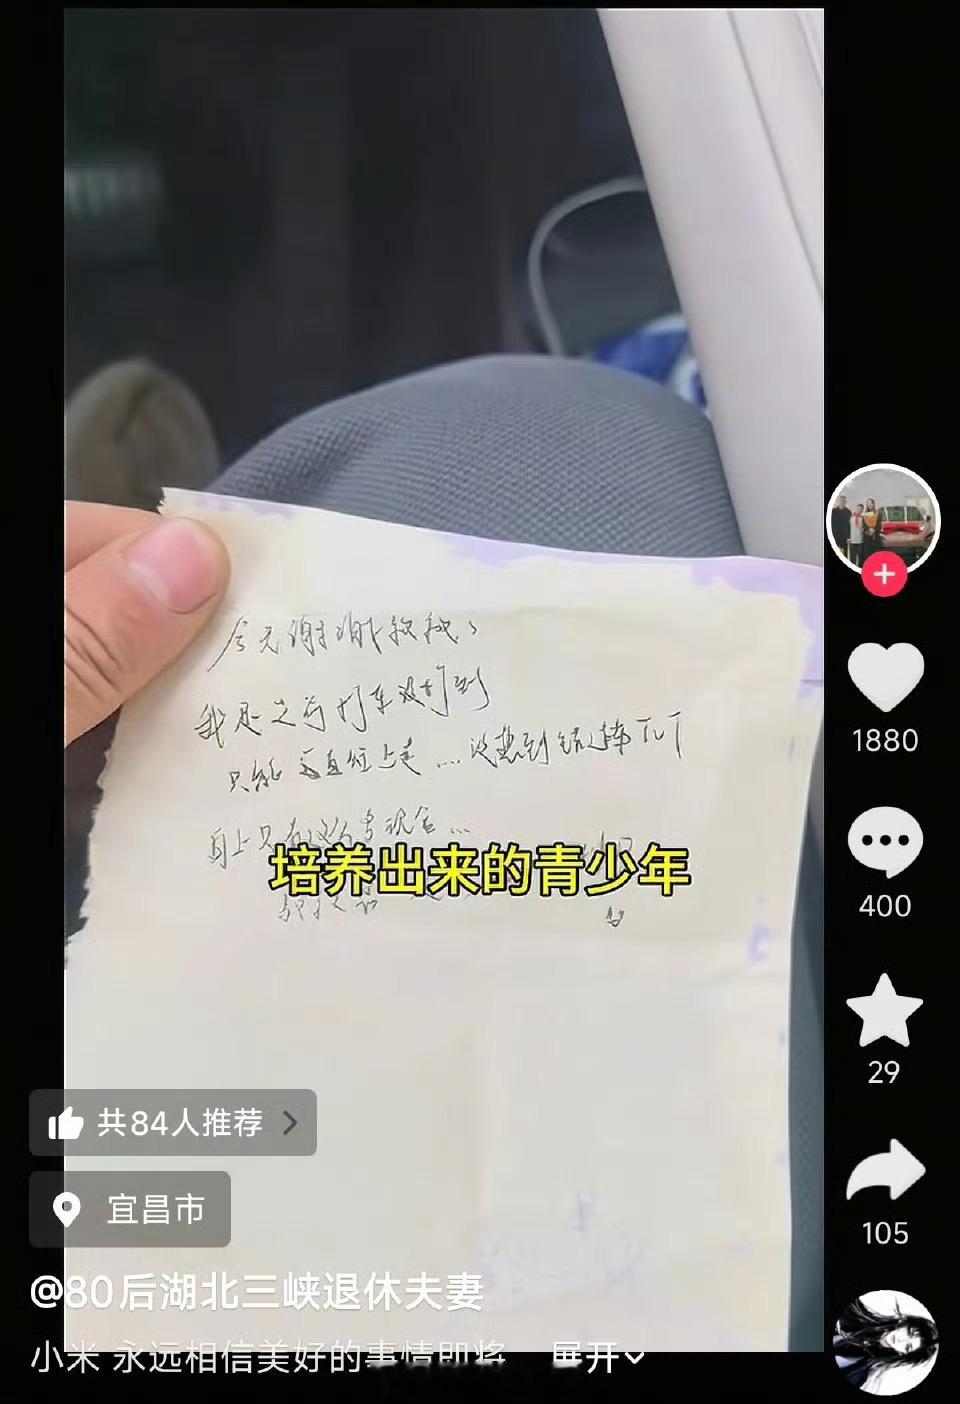 今天谢谢叔叔、
我是之前打车没打到
只能一直往上走...没想到错过
身上只有这么多现金...
培养出来的青少年
1880
400
29
105
共84人推荐
宜昌市
@80后湖北三峡退休夫妻
小米 永远相信美好的事情即将 展开